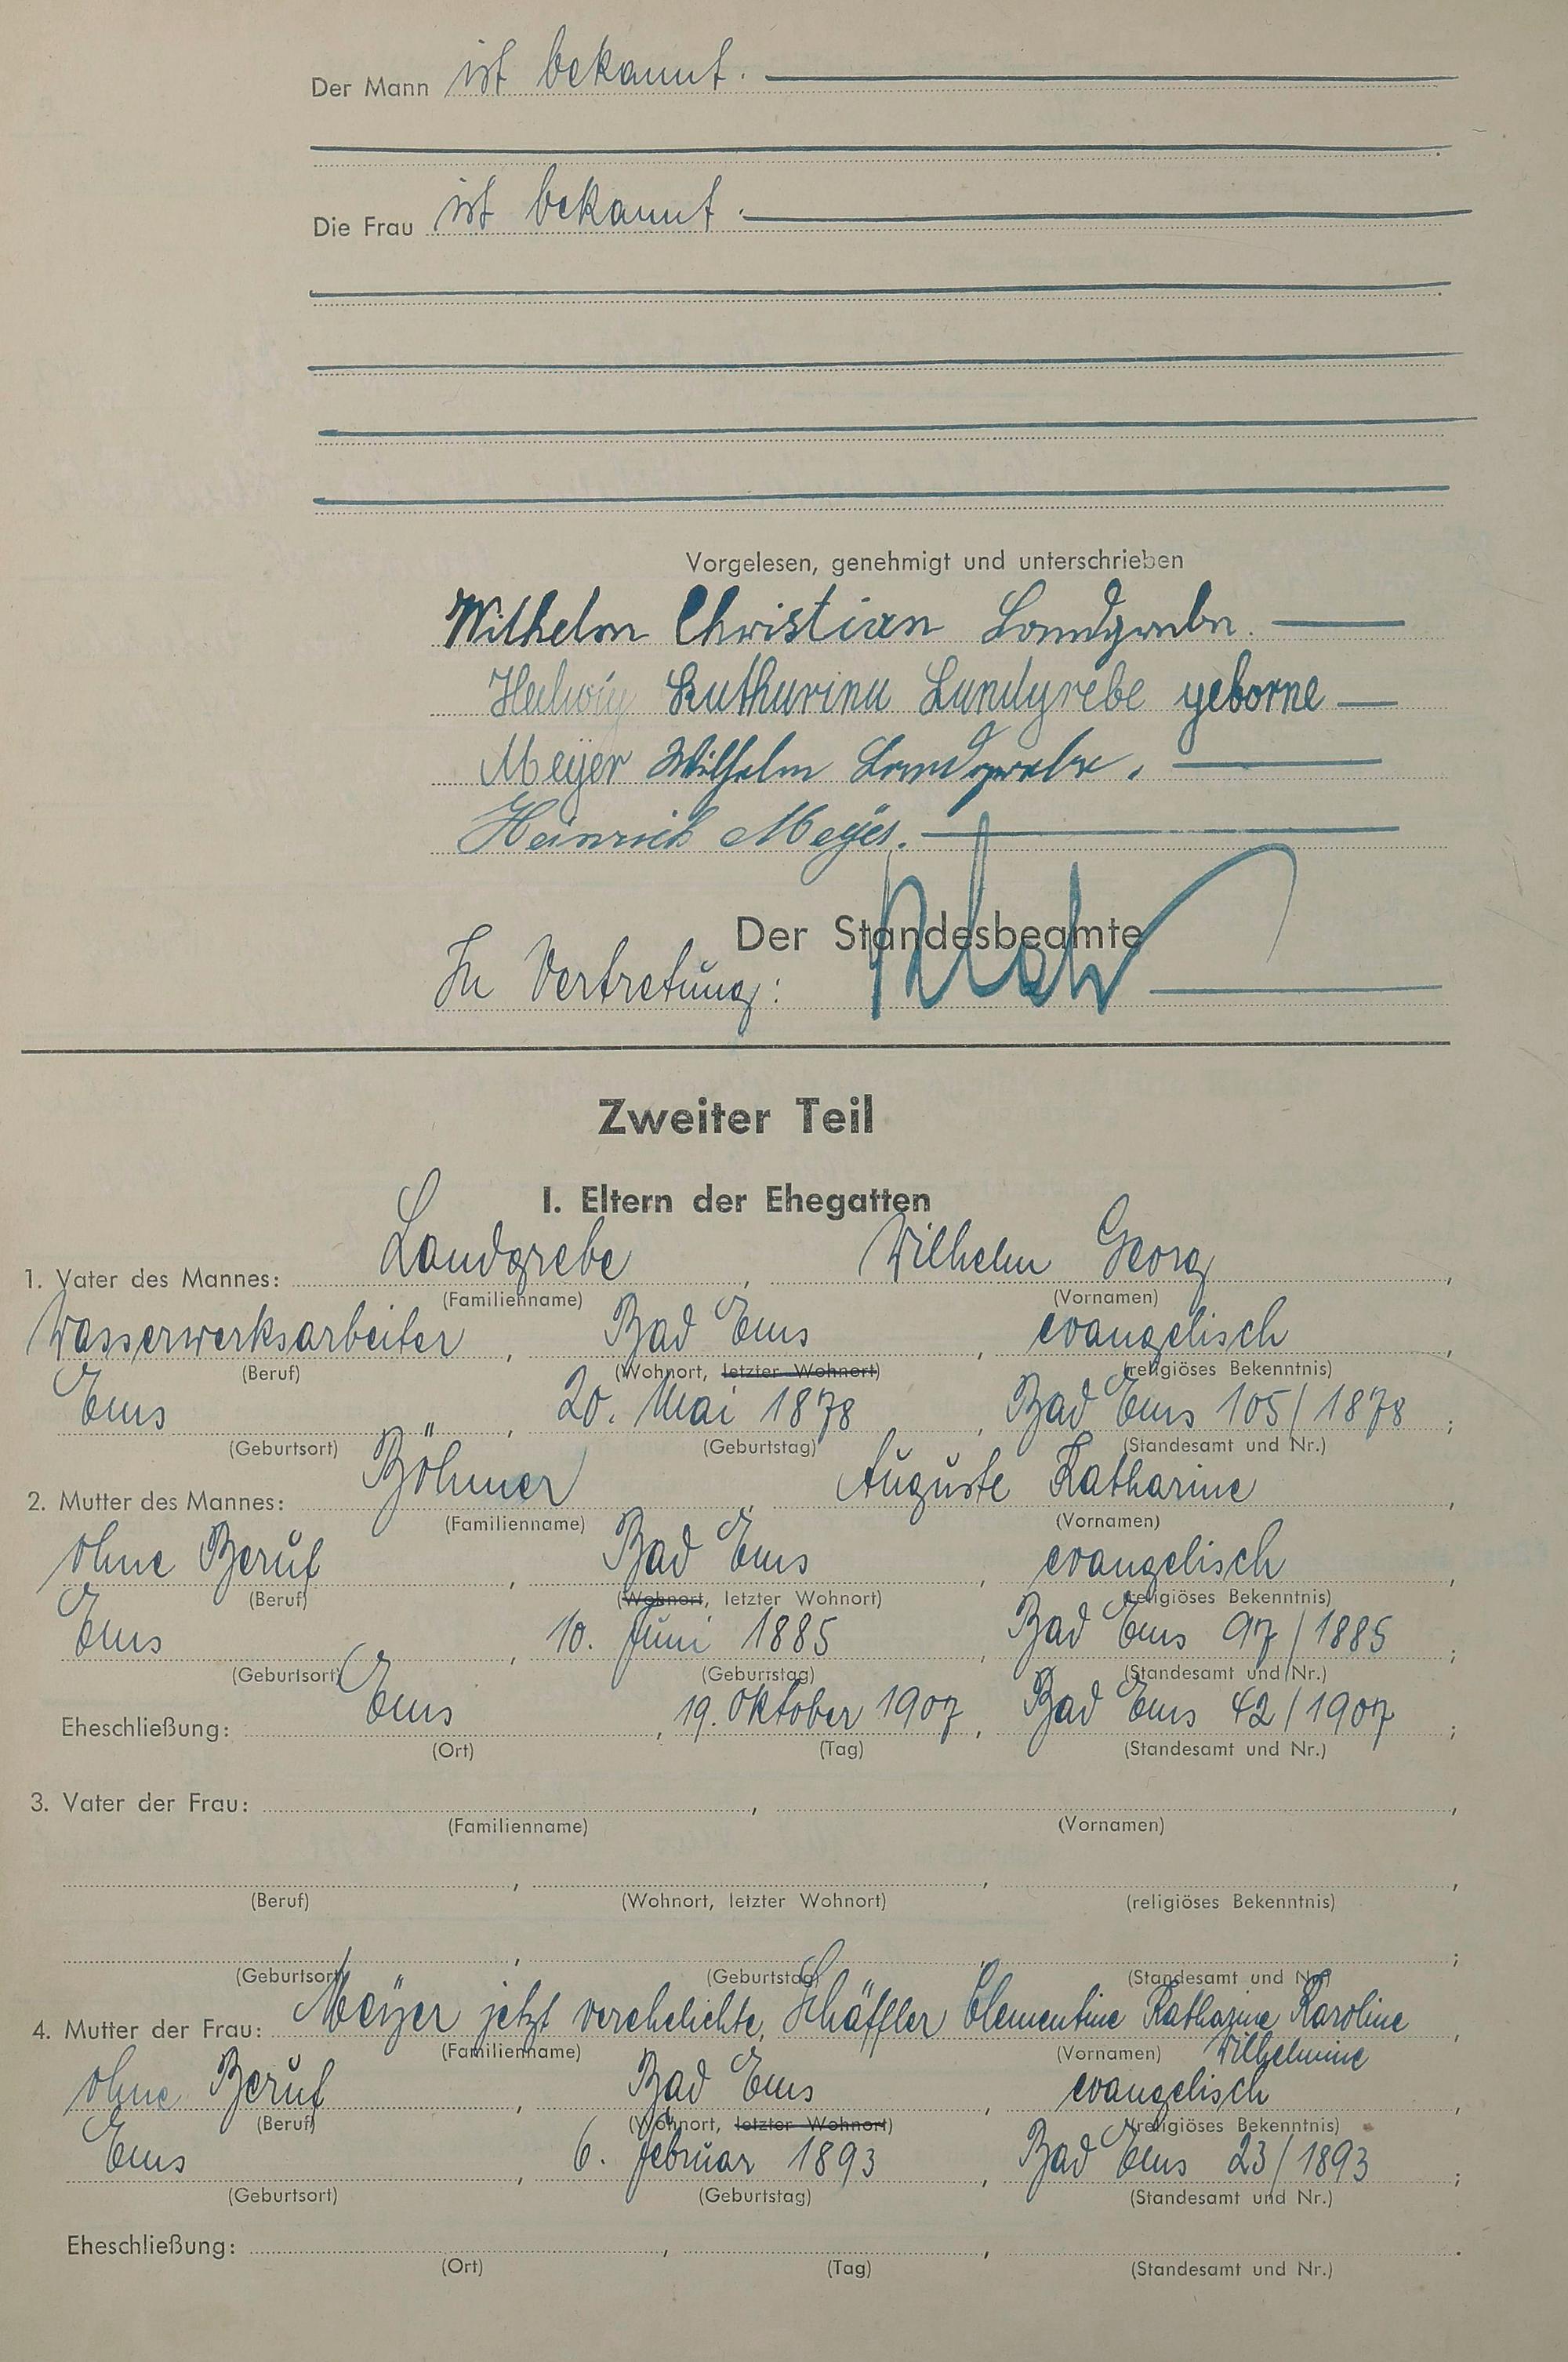 Der Mann ist bekannt.
Die Frau ist bekannt.
Vorgelesen, genehmigt und unterschrieben
Wilhelm Christian Landgrebe.
Hedwig Katharina Landgrebe geborne
Meÿer Wilhelm Landgrebe.
Heinrich Meÿer.
Der Standesbeamte
In Vertretung:
Zweiter Teil
I. Eltern der Ehegatten
1. Vater des Mannes: Landgrebe, Wilhelm Georg,
(Familienname) (Vornamen)
Wasserwerksarbeiter, Bad Ems, evangelisch,
(Beruf) (Wohnort, letzter Wohnort) (religiöses Bekenntnis)
Ems, 20. Mai 1878, Bad Ems 105/1878;
(Geburtsort) (Geburtstag) (Standesamt und Nr.)
2. Mutter des Mannes: Böhmer, Auguste Katharine,
(Familienname) (Vornamen)
ohne Beruf, Bad Ems, evangelisch,
(Beruf) (Wohnort, letzter Wohnort) (religiöses Bekenntnis)
Ems, 10. Juni 1885, Bad Ems 97/1885;
(Geburtsort) (Geburtstag) (Standesamt und Nr.)
Eheschließung: Ems, 19. Oktober 1907, Bad Ems 42/1907;
(Ort) (Tag) (Standesamt und Nr.)
3. Vater der Frau: , ,
(Familienname) (Vornamen)
, , ,
(Beruf) (Wohnort, letzter Wohnort) (religiöses Bekenntnis)
, , ;
(Geburtsort) (Geburtstag) (Standesamt und Nr.)
4. Mutter der Frau: Meÿer jetzt verehelichte, Schäffler Clementine Katharine Karoline,
(Familienname) (Vornamen) Wilhelmine
ohne Beruf, Bad Ems, evangelisch,
(Beruf) (Wohnort, letzter Wohnort) (religiöses Bekenntnis)
Ems, 6. Februar 1893, Bad Ems 23/1893;
(Geburtsort) (Geburtstag) (Standesamt und Nr.)
Eheschließung: , , .
(Ort) (Tag) (Standesamt und Nr.)